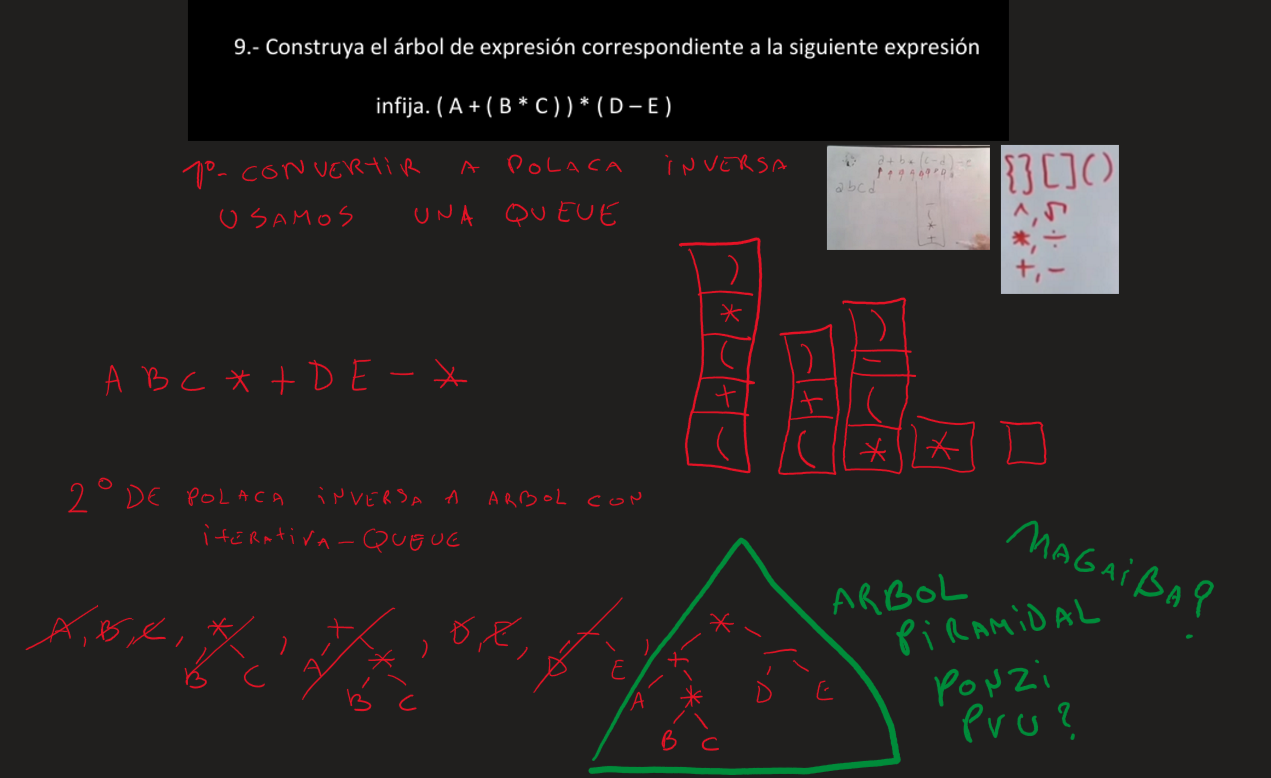 9.- Construya el árbol de expresión correspondiente a la siguiente expresión
infija. ( A + ( B * C ) ) * ( D – E )
1º- CONVERTIR A POLACA INVERSA
USAMOS UNA QUEUE
a + b * (c - d) - e
a b c d
-
(
*
+
{} [] ()
^, √
*, ÷
+, -
)
*
(
+
(
)
+
(
)
-
(
*
*
A B C * + D E - *
2º DE POLACA INVERSA A ARBOL CON
ITERATIVA - QUEUE
A, B, C, * , + , D, E, - ,
B C
A *
B C
D E
*
+ -
A * D E
B C
MAGAIBA?
ARBOL
PIRAMIDAL
PONZI
PVU?